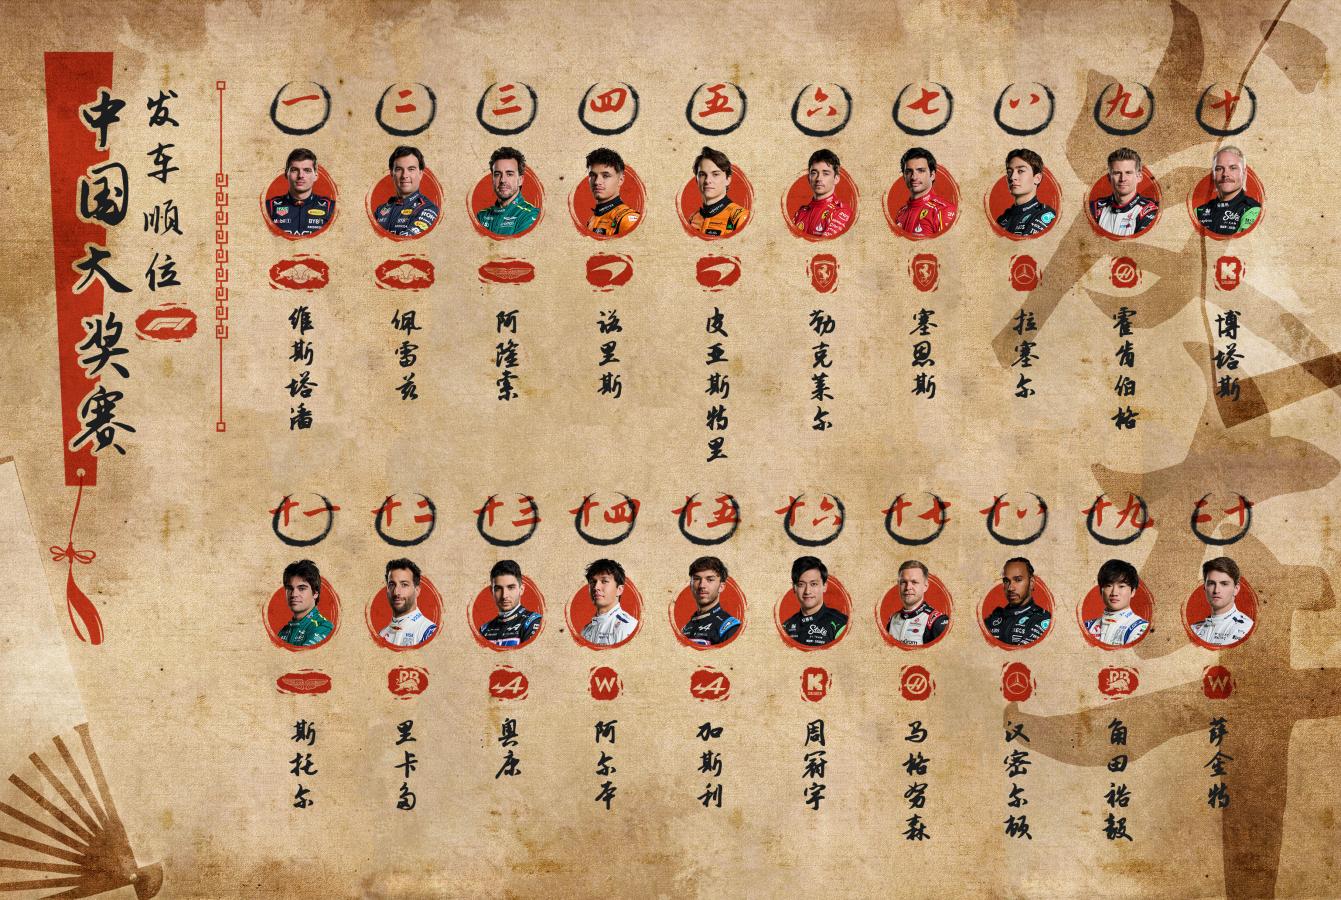 中国大奖赛
发车顺位
F1
一
二
三
四
五
六
七
八
九
十
维斯塔潘
佩雷兹
阿隆索
诺里斯
皮亚斯特里
勒克莱尔
塞恩斯
拉塞尔
霍肯伯格
博塔斯
十一
十二
十三
十四
十五
十六
十七
十八
十九
二十
斯托尔
里卡多
奥康
阿尔本
加斯利
周冠宇
马格努森
汉密尔顿
角田裕毅
萨金特